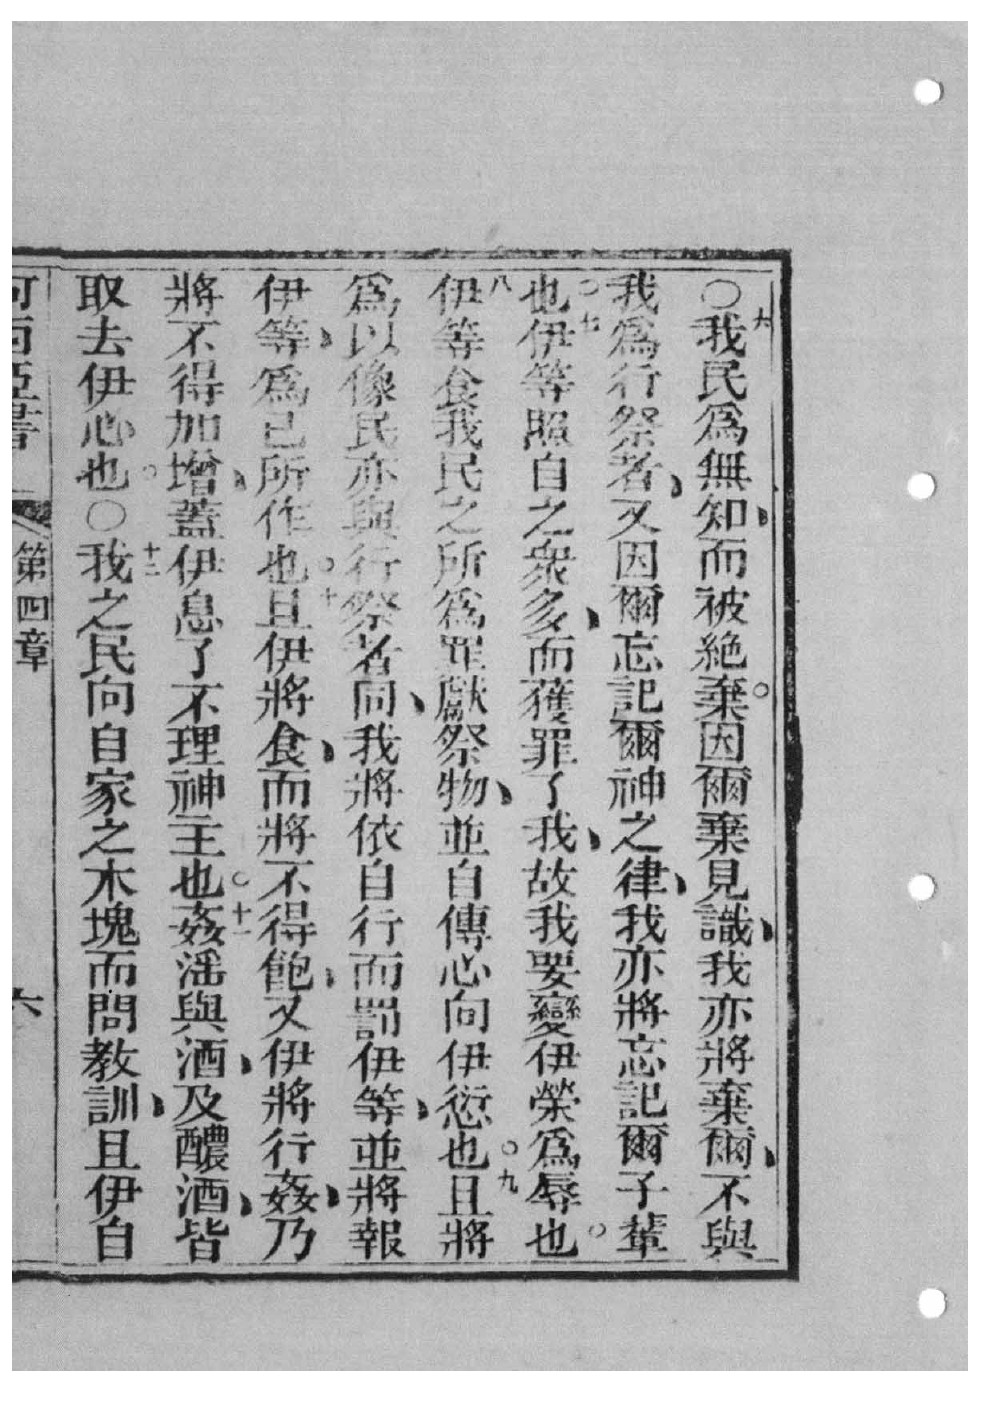 六○我民爲無知、而被絶棄。因爾棄見識、我亦將棄爾、不與
我爲行祭者、又因爾忘記爾神之律、我亦將忘記爾子輩
也。七伊等照自之衆多、而獲罪了我、故我要變伊榮爲辱也。
八伊等食我民之所爲罪獻祭物、並自傳心向伊愆也。九且將
爲以像民亦與行祭者同、我將依自行而罰伊等、並將報
伊等、爲已所作也。十且伊將食、而將不得飽、又伊將行姦、乃
將不得加增、蓋伊息了不理神主也。十一姦淫與酒、及醲酒、皆
取去伊心也。○十二我之民向自家之木塊而問教訓、且伊自
何西亞書 第四章 六